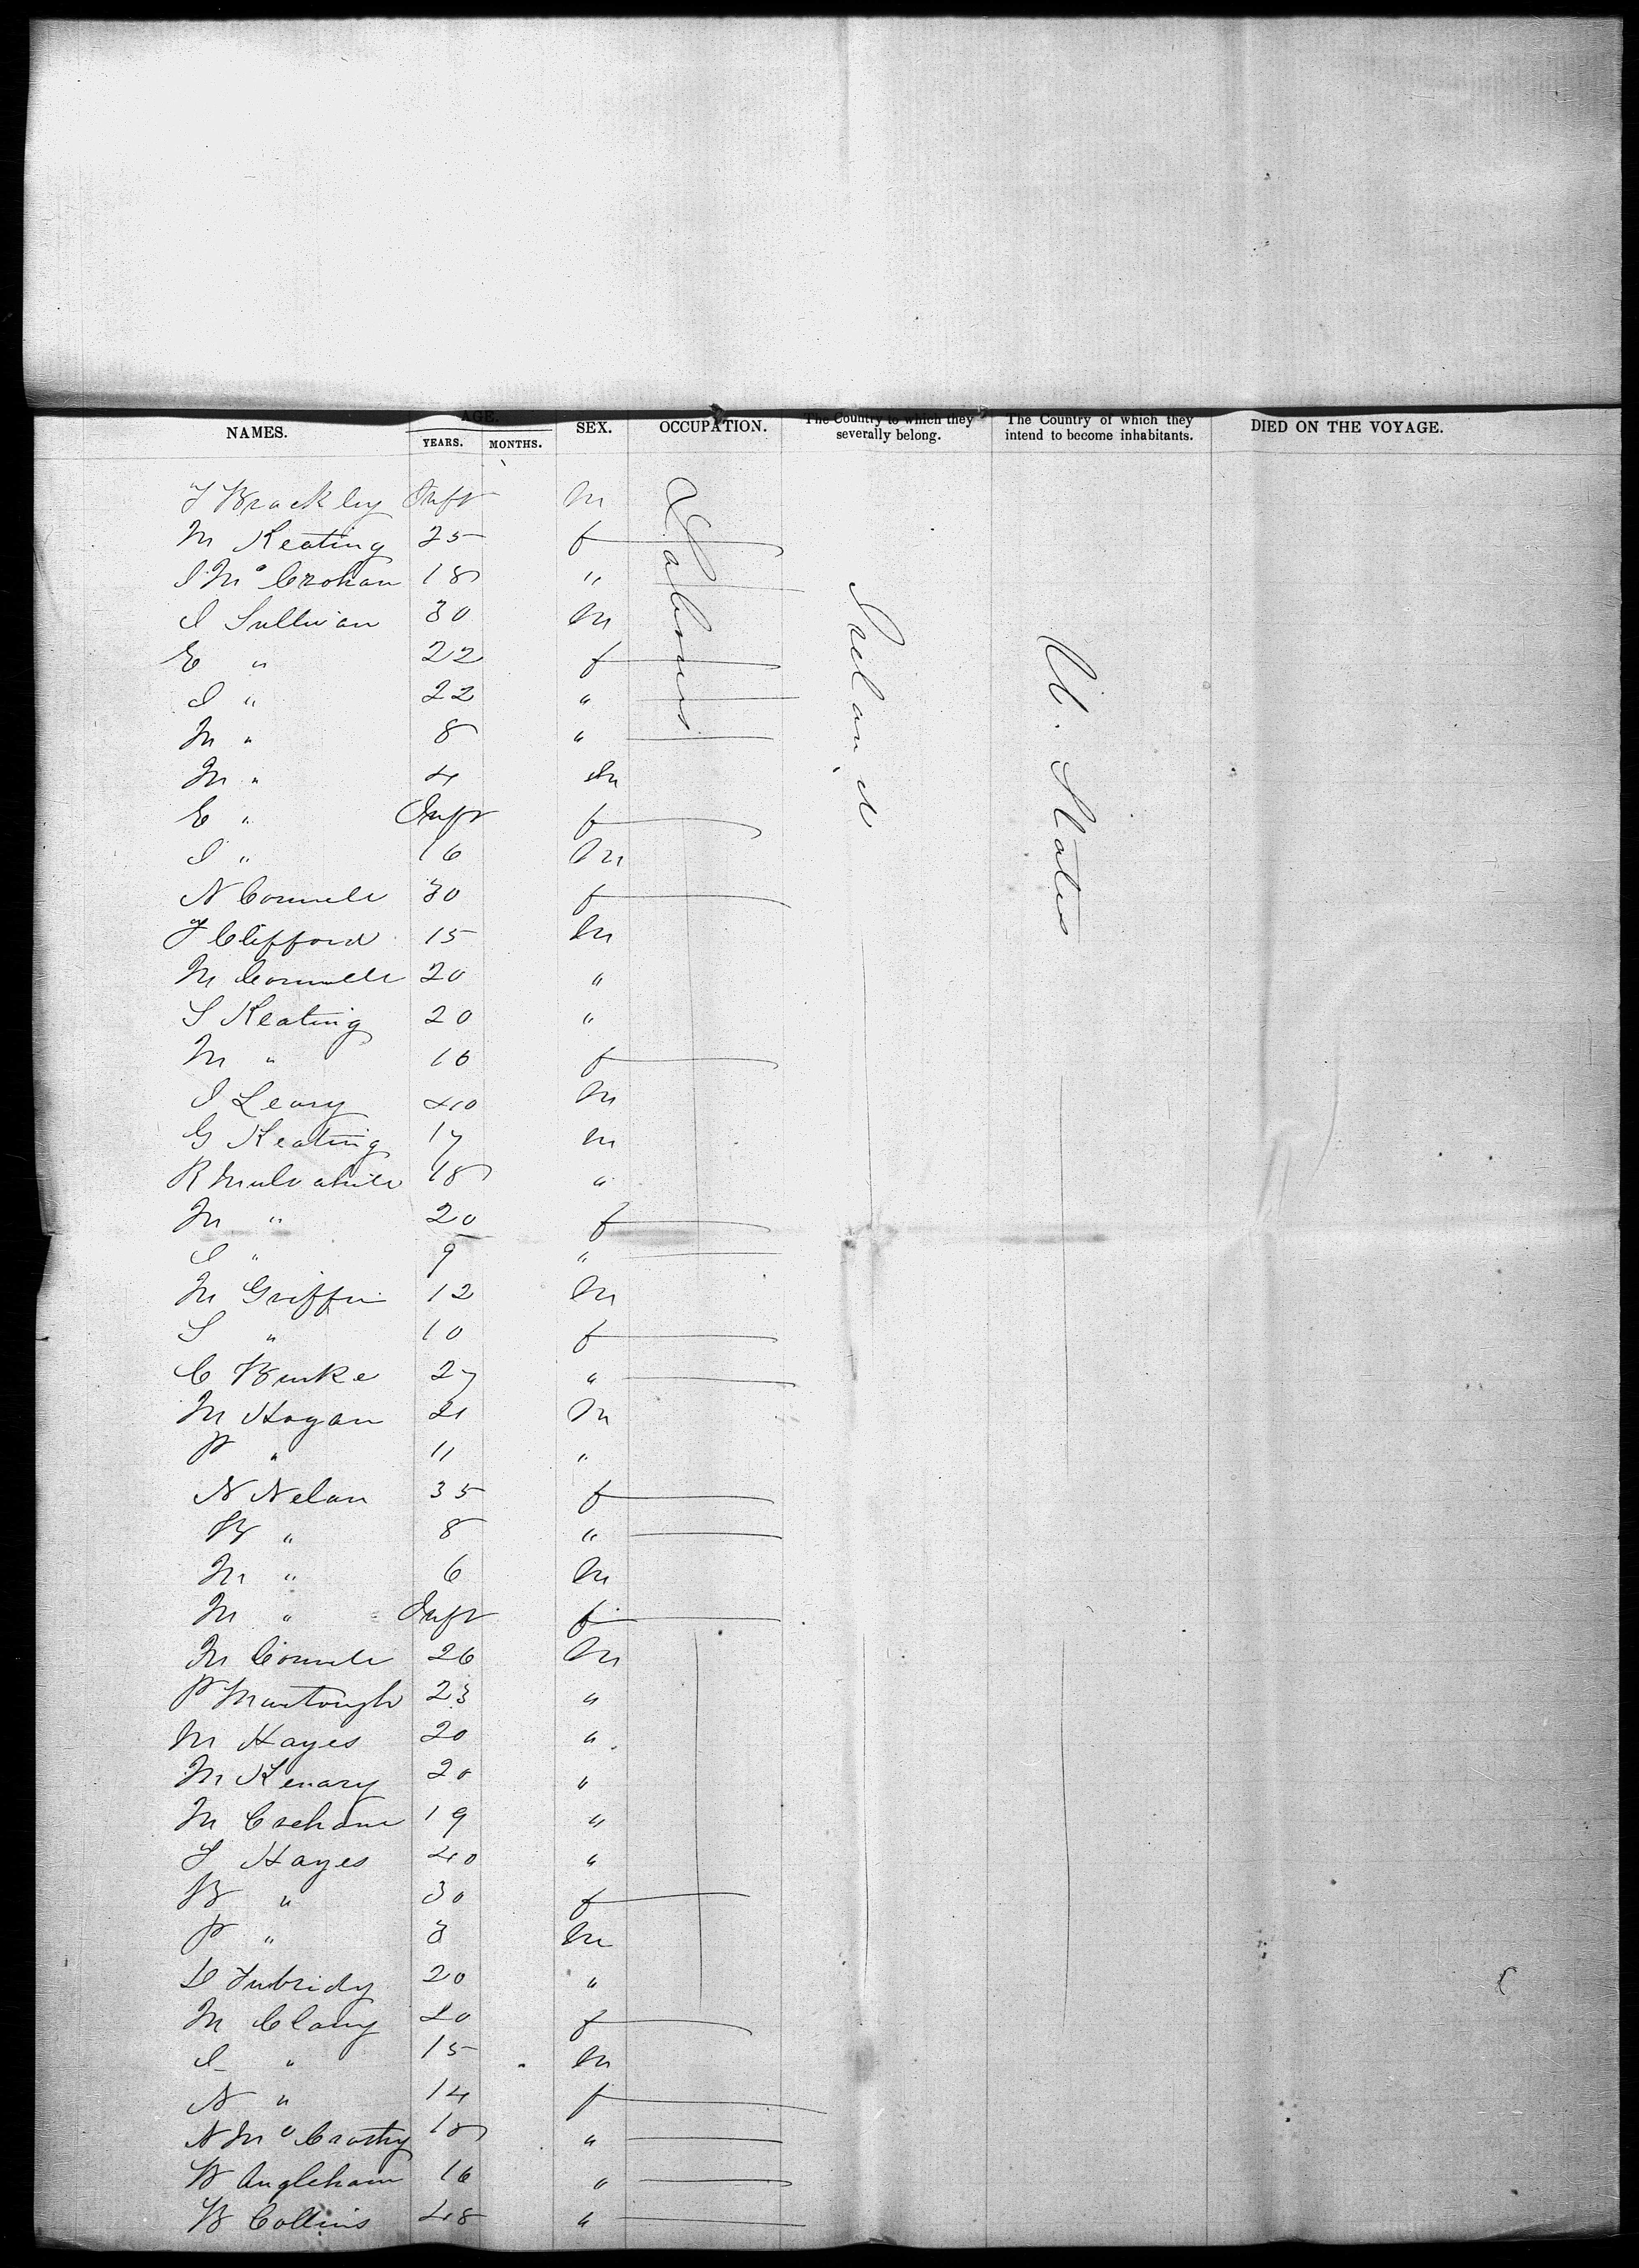 NAMES. AGE. YEARS. MONTHS. SEX. OCCUPATION. The Country to which they severally belong. The Country of which they intend to become inhabitants. DIED ON THE VOYAGE.
Labourers
Ireland
U. States
T Brackley Inft m
M Keating 25 f
J McCrohan 18 "
J Sullivan 30 m
E " 22 f
J " 22 "
M " 8 "
M " 4 m
E " Inft f
J " 16 m
N Connell 30 f
T Clifford 15 m
M Connell 20 "
S Keating 20 "
M " 16 f
J Leary 40 m
G Keating 17 m
R Mulvahill 18 "
M " 20 f
J " 9 "
M Griffin 12 m
S " 10 f
C Burke 27 "
M Hogan 21 m
P " 11 "
N Nelan 35 f
B " 8 "
M " 6 m
M " Inft f
M Connell 26 m
P Murtough 23 "
M Hayes 20 "
M Kenary 20 "
M Crehan 19 "
T Hayes 40 "
B " 30 f
P " 3 m
D Tubridy 20 "
M Clany 20 f
J " 15 m
N " 14 f
N McCrathy 18 "
B Angleham 16 "
B Collins 48 "